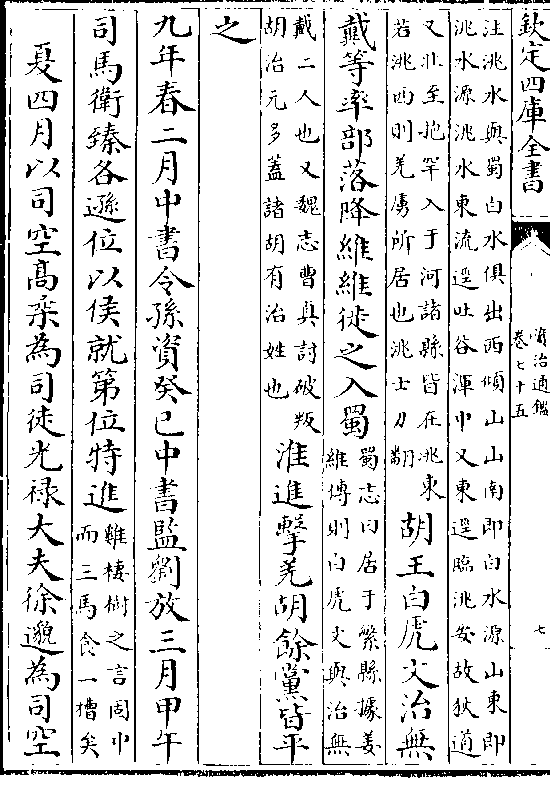 欽定四庫全書
資治通鑑
卷七十五
七
注洮水與蜀白水俱出西傾山山南即白水源山東即
洮水源洮水東流逕吐谷渾中又東逕臨洮安故狄道
又北至抱罕入于河諸縣皆在洮東
若洮西則羌虜所居也洮士刀翻
胡王白虎文治無
戴等率部落降維維徙之入蜀
蜀志曰居于繁縣據姜
維傳則白虎文與治無
戴二人也又魏志曹真討破叛
胡治元多蓋諸胡有治姓也
淮進擊羌胡餘黨皆平
之
九年春二月中書令孫資癸巳中書監劉放三月甲午
司馬衛臻各遜位以侯就第位特進
雞棲樹之言固中
而三馬食一槽矣
夏四月以司空高柔為司徒光祿大夫徐邈為司空